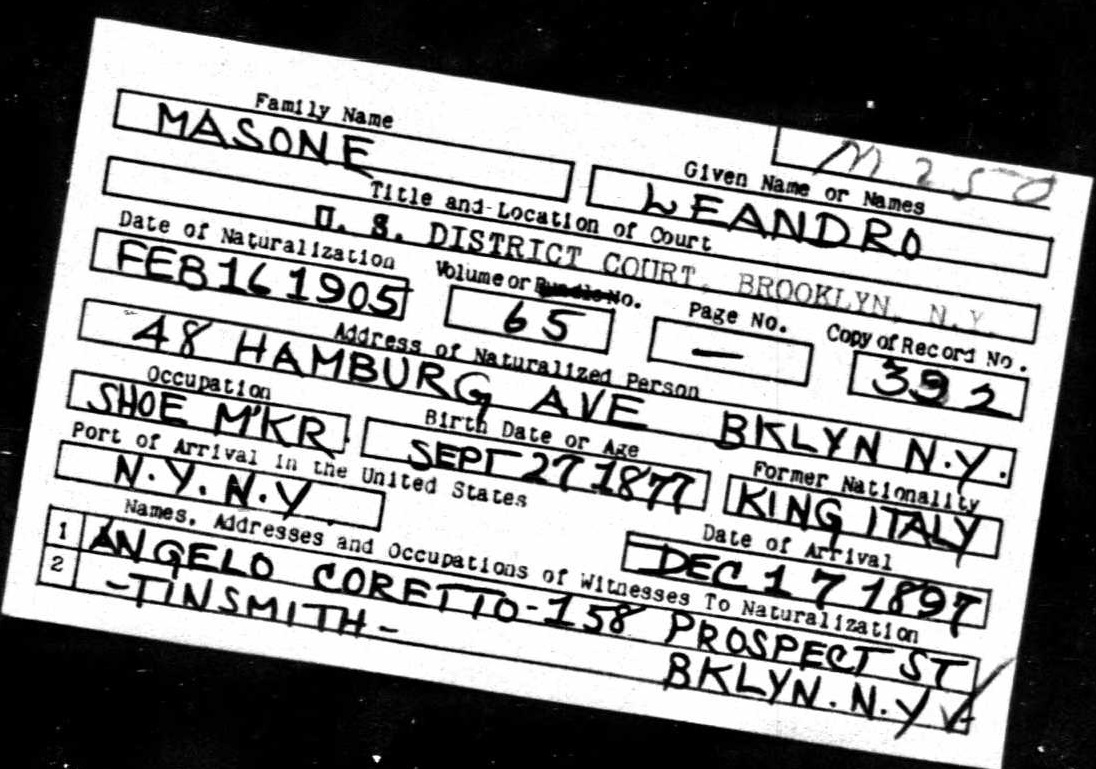 M 250
Family Name
MASONE
Given Name or Names
LEANDRO
Title and Location of Court
U. S. DISTRICT COURT, BROOKLYN, N.Y.
Date of Naturalization
FEB 16 1905
Volume or Bundle No.
65
Page No.
—
Copy of Record No.
392
Address of Naturalized Person
48 HAMBURG AVE BKLYN N.Y.
Occupation
SHOE M'KR.
Birth Date or Age
SEPT 27 1877
Former Nationality
KING ITALY
Port of Arrival in the United States
N.Y. N.Y.
Date of Arrival
DEC 17 1897
Names, Addresses and Occupations of Witnesses To Naturalization
1 ANGELO CORETTO - 158 PROSPECT ST
2 -TINSMITH- BKLYN. N.Y